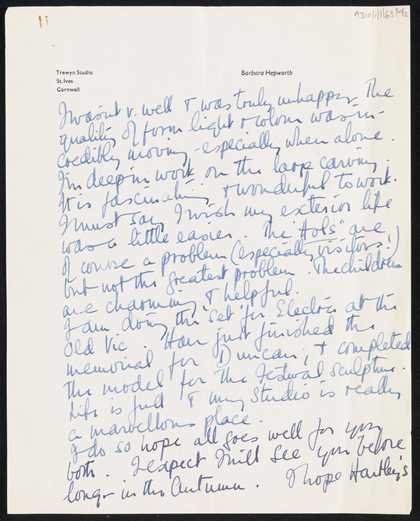 Trewyn Studio
Barbara Hepworth
St. Ives
Cornwall
I wasn't v. well & was truly unhappy. The
quality of form light & colour was in-
credibly moving - especially when alone.
I'm deep in work on the large carving.
It is fascinating & wonderful to work.
I must say I wish my exterior life
was a little easier. The "Hols" are
of course a problem (especially visitors!)
but not the greatest problem. The children
are charming & helpful.
I am doing the 'set' for Electra at the
Old Vic. Have just finished the
memorial for Duncan, & completed
the model for the Festival Sculpture.
Life is full & my Studio is really
a marvellous place.
I do so hope all goes well for you
both. I expect I will see you before
long - in the Autumn. I hope Hartley's